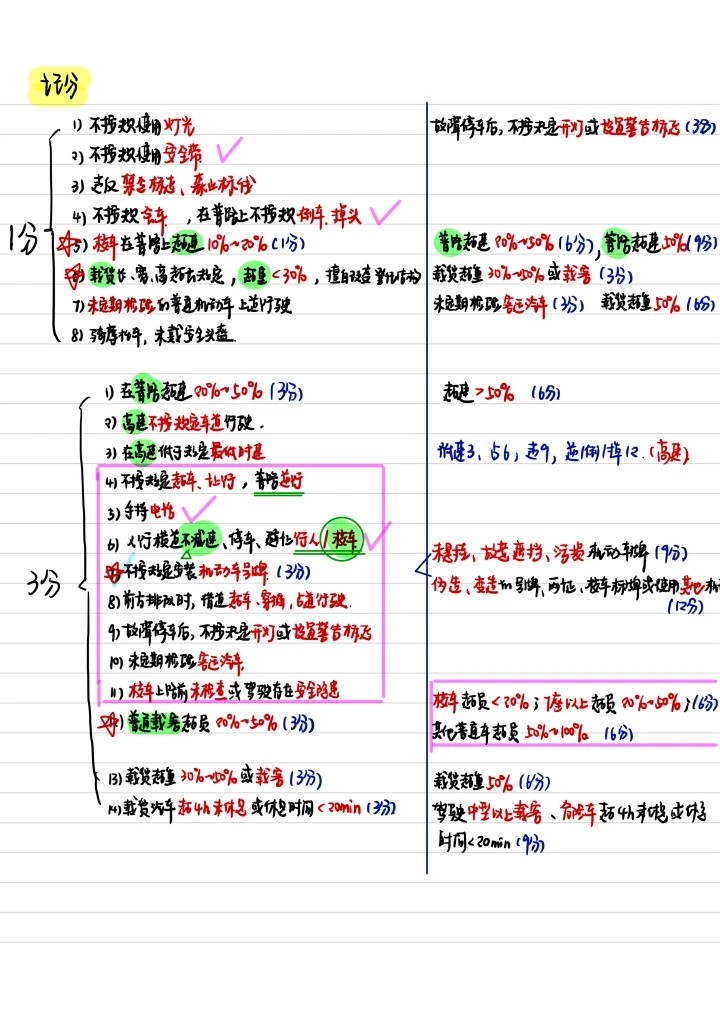 记分
1分
1) 不按规使用灯光
2) 不按规使用安全带
3) 违反禁令标志、禁止标线
4) 不按规会车，在普路上不按规倒车、掉头
5) 校车在普路上超速10%~20%(1分)
6) 载货长、宽、高超出规定，超重<30%，擅自改造
7) 未定期检验的普通机动车上道行驶
8) 骑摩托车，未戴安全头盔.
故障停车后，不按规定开灯或设置警告标志(3分)
普路超速20%~50%(6分)，普路超速50%(9分)
载货超重30%~50%或载客(3分)
未定期检验客运汽车(3分) 载货超重50%(6分)
3分
1) 在普路超速20%~50%(3分)
2) 高速不按规定车道行驶.
3) 在高速低于规定最低时速
4) 不按规定超车、让行，普路逆行
5) 手持电话
6) 人行横道不减速、停车、避让行人/校车
不按规定安装机动车号牌(3分)
8) 前方排队时，借道超车、穿插，占道行驶.
9) 故障停车后，不按规定开灯或设置警告标志
10) 未定期检验客运汽车
11) 校车上路前未检查或驾驶存在安全隐患
12) 普通载客超员20%~50%(3分)
13) 载货超重30%~50%或载客(3分)
14) 载货汽车超4h未休息或休息时间<20min(3分)
超速>50% (6分)
低速3、占6，逆9，逆1倒1掉12.(高速)
未悬挂、故意遮挡、污损机动车牌(9分)
伪造、变造的号牌、两证、校车标牌或使用其他机
(12分)
校车超员<20%；7座以上超员20%~50%；(6分)
其他普通车超员50%~100% (6分)
载货超重50%(6分)
驾驶中型以上载客、危险车超4h未休息或休息
时间<20min(9分)